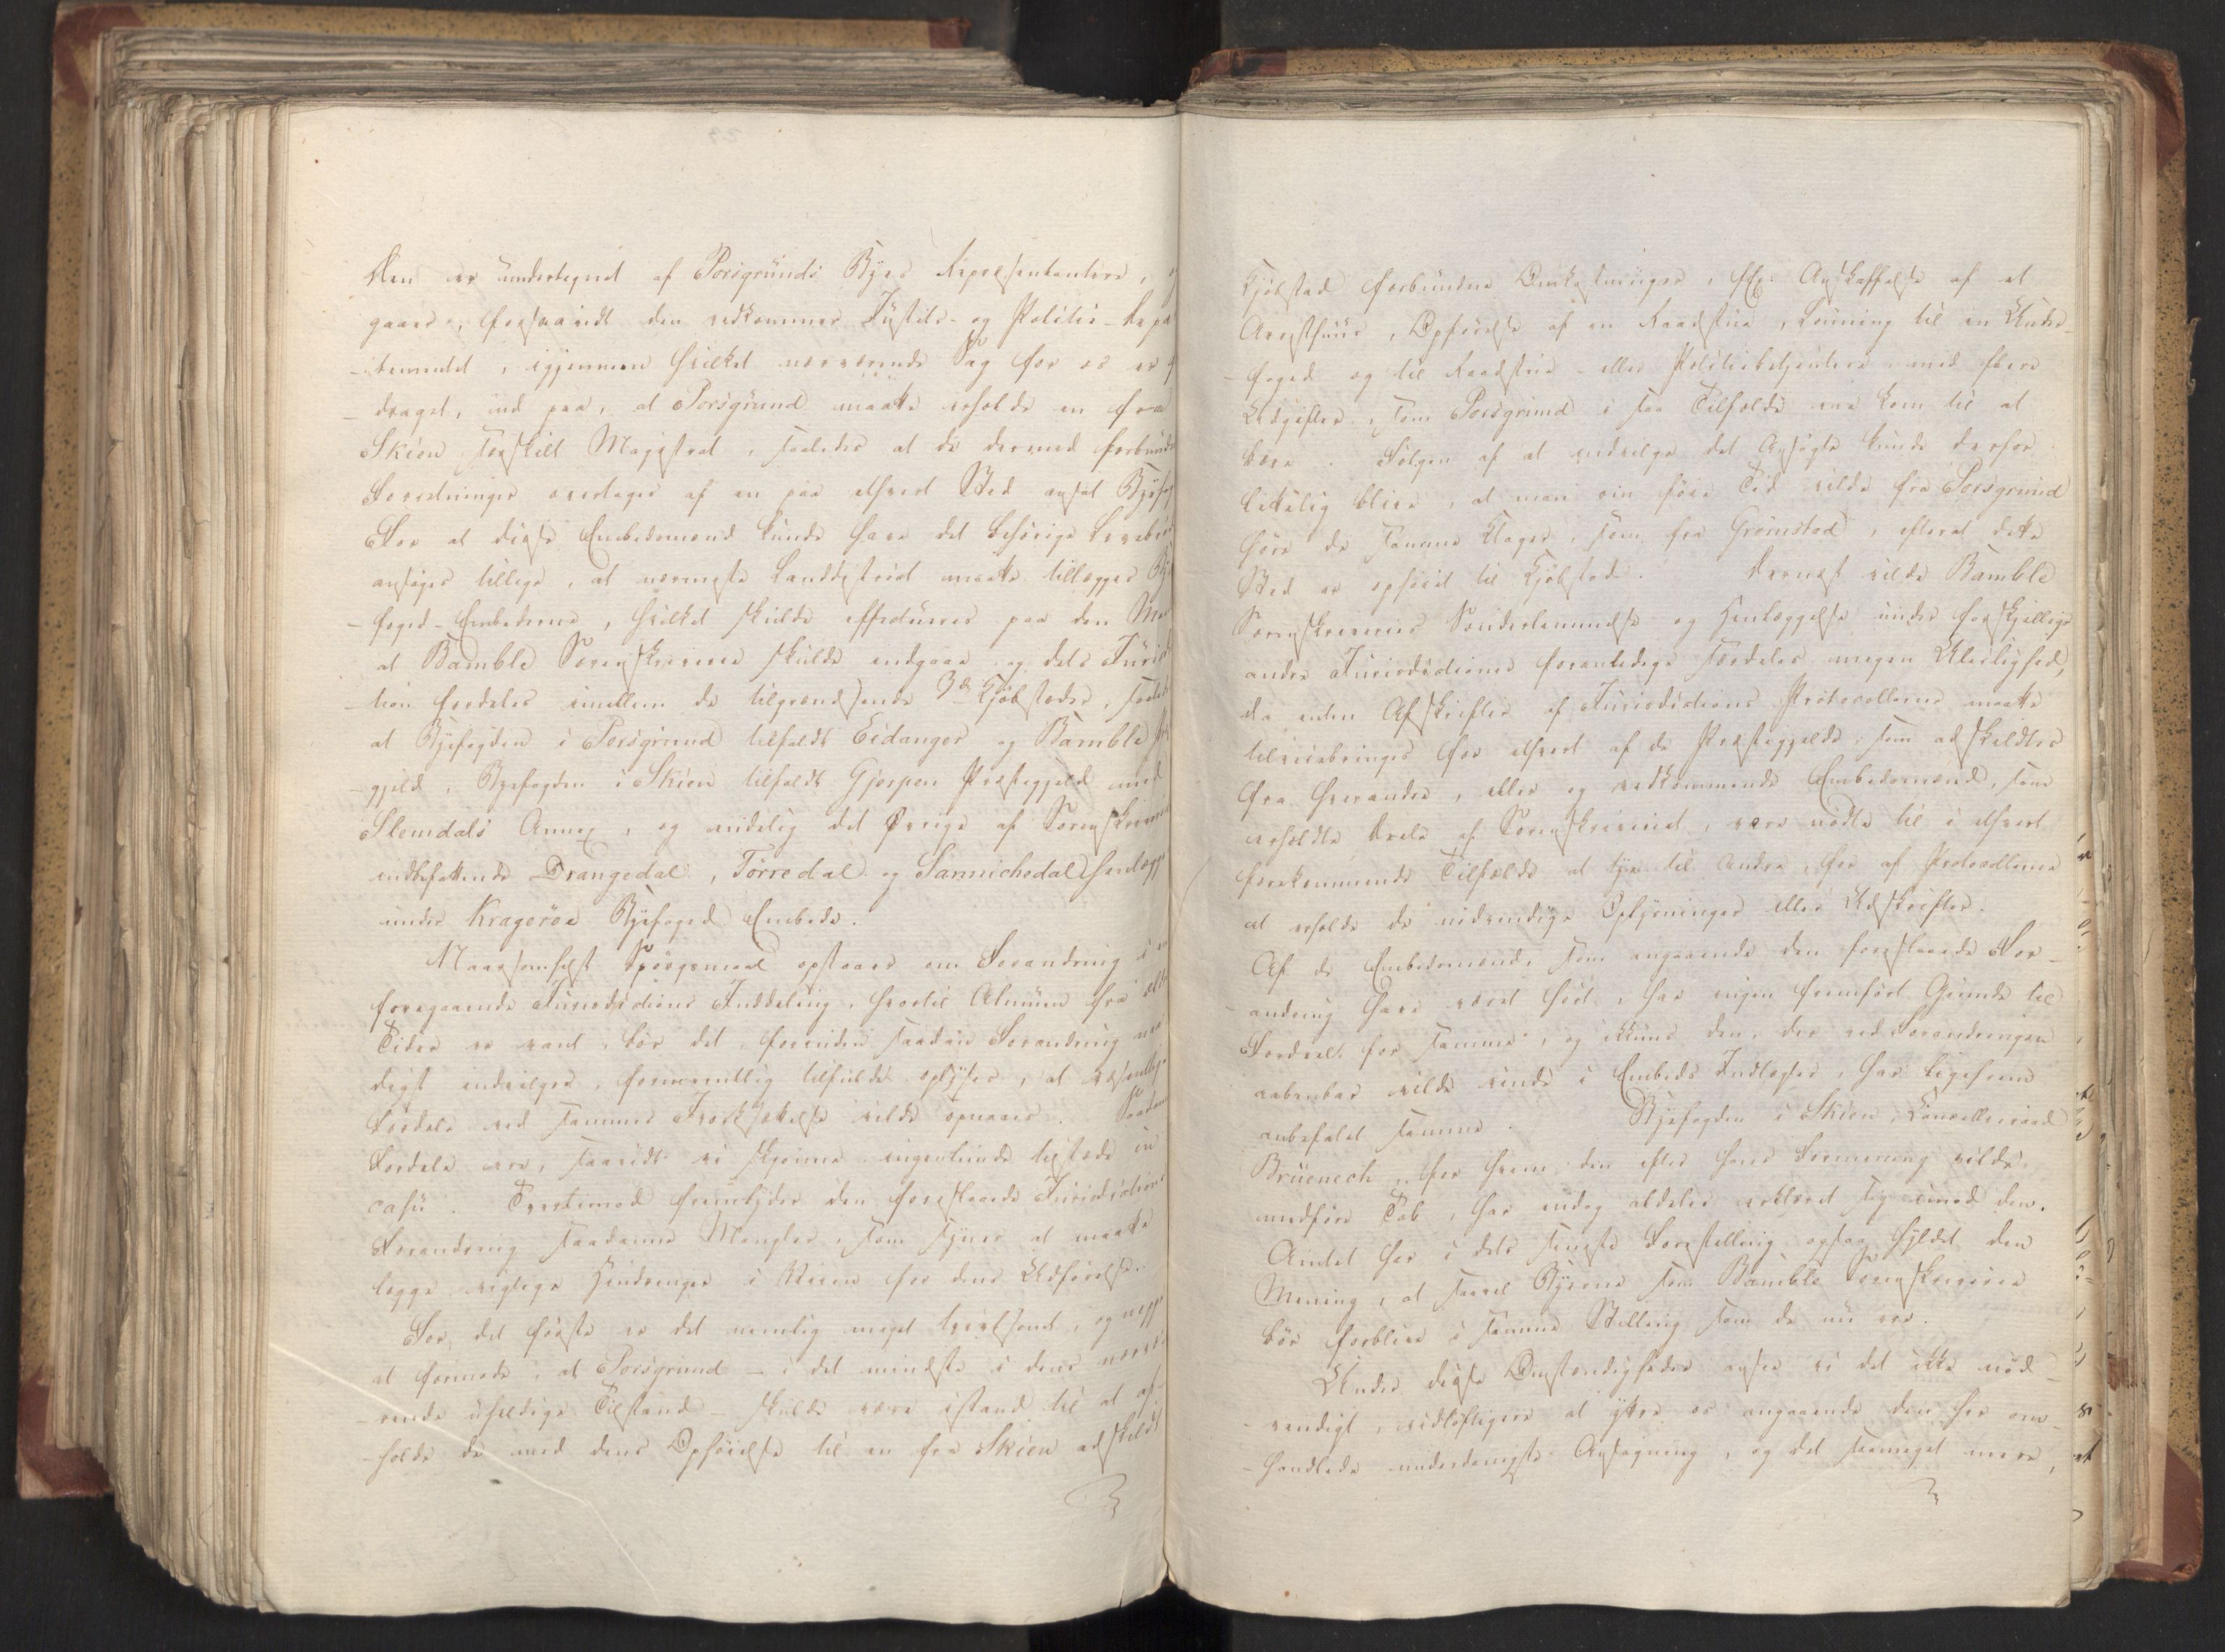 Den er undertegnet af Porsgrunds Byes Repræsentantere,
gaaer, forsaavidt den vedkommer Justits- og Politie-Depar
-tementet, igjennem hvilket nærværende Sag for os er
-draget, ud paa, at Porsgrund maatte erholde en fra
Skien særskilt Magistrat, saaledes at de dermed forbundne
Forretninger overtages af en paa ethvert Sted ansat Byefog
For at disse Embedsmænd kunde have det behørige Levebrød
ansøges tillige, at nærmeste Landdistrict maatte tillægges Bye
-foged-Embederne, hvilket skulde effectueres paa den Maa
at Bamble Sorenskriverie skulde indgaae og dets Jurisdic
-tion fordeles imellem de tilgrændsende 3de Kjøbstæder, saaledes
at Byefogden i Porsgrund tilfaldt Eidanger og Bamble Præ
-gjeld, Byefogden i Skien tilfaldt Gjerpen Præstegjeld med
Slemdals Annex, og endelig det Øvrige af Sorenskriverie
indbefattende Drangedal, Tørredal og Sannichedal henlægges
under Kragerøe Byefoged Embede.
Naarsomhelst Spørgsmaal opstaaer om Forandring i en
foregaaende Jurisdictions Inddeling, hvortil Almuen fra ældre
Tider er vant, bør det, forinden saadan Forandring naa
digst indvilges, formeentlig tilfulde oplyses, at væsentlige
Fordele ved sammes Iværksættelse vilde opnaaes. Saadanne
Fordele ere, saavidt vi skjønne ingenlunde tilstæde in
casu. Tvertimod frembyder den foreslaaede Jurisdictions
Forandring saadanne Mangler, som synes at maatte
lægge vigtige Hindringer i Veien for dens Udførelse.
For det første er det nemlig meget tvivlsomt, og neppe
at formode, at Porsgrund – i det mindste i dens nærvæ
-rende uheldige Tilstand – skulde være istand til at af-
-holde de med dens Ophøielse til en fra Skien adskildt
Kjøbstad forbundne Omkostninger, f.Ex. Anskaffelse af et
Arresthuus, Opførelse af en Raadstue, Lønning til en Under-
-foged og til Raadstue- eller Politiebetjentere med flere
Udgifter, som Porsgrund i saa Tilfælde vil kom til at
bære. Følgen af at indvilge det Ansøgte kunde derfor
lettelig blive, at man om føie Tid vilde fra Porsgrund
høre de samme Klager, som fra Grimstad, efterat dette
Sted er ophøiet til Kjøbstad. Dernæst vilde Bamble
Sorenskriveries Sønderlemmelse og Henlæggelse under forskjellige
andre Jurisdictioner foranledige særdeles megen Uleilighed,
da enten Afskrifter af Jurisdictions Protocollerne maatte
tilveiebringes for ethvert af de Præstegjelde, som adskildtes
fra hverandre, eller og vedkommende Embedsmænd, som
erholdte Dele af Sorenskriveriet, være nødte til i ethvert
forekommende Tilfælde at tye til Andre, for af Protocollerne
at erholde de nødvendige Oplysninger eller Udskrifter.
Af de Embedsmænd, som angaaende den foreslaaede For-
-andring have været hørt, har ingen fremført Grunde til
Fordeel for samme, og ikkuns den, der ved Forandringen
aabenbar vilde vinde i Embeds Indtægter, har ligefrem
anbefalet samme. Byefogden i Skien, Cancelliraad
Brüenech, for hvem den efter hans Formening vilde
medføre Tab, har endog aldeles erklæret sig imod den.
Amtet har i dets seneste Forestilling ogsaa hyldet den
Mening, at saavel Byerne som Bamble Sorenskriverie
bør forblive i samme Stilling som de nu ere.
Under disse Omstændigheder ansee vi det ikke nød-
-vendigt, vidløftigere at yttre os angaaende den her om-
-handlede underdanigste Ansøgning, og det saameget mere,